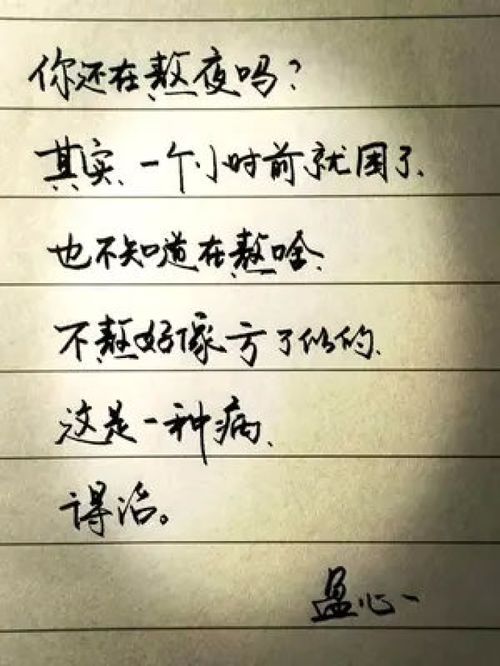 你还在熬夜吗？
其实、一个小时前就困了、
也不知道在熬啥、
不熬好像亏了似的、
这是一种病、
得治。
盈心一